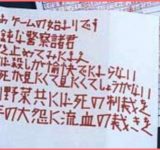 ゲームの始まりです
鈍な警察諸君
止めてみたまえ
は殺しが愉快でたまらない
死が見たくて見たくてしょうがない
野菜共には死の制裁を
の大怨に流血の裁きを